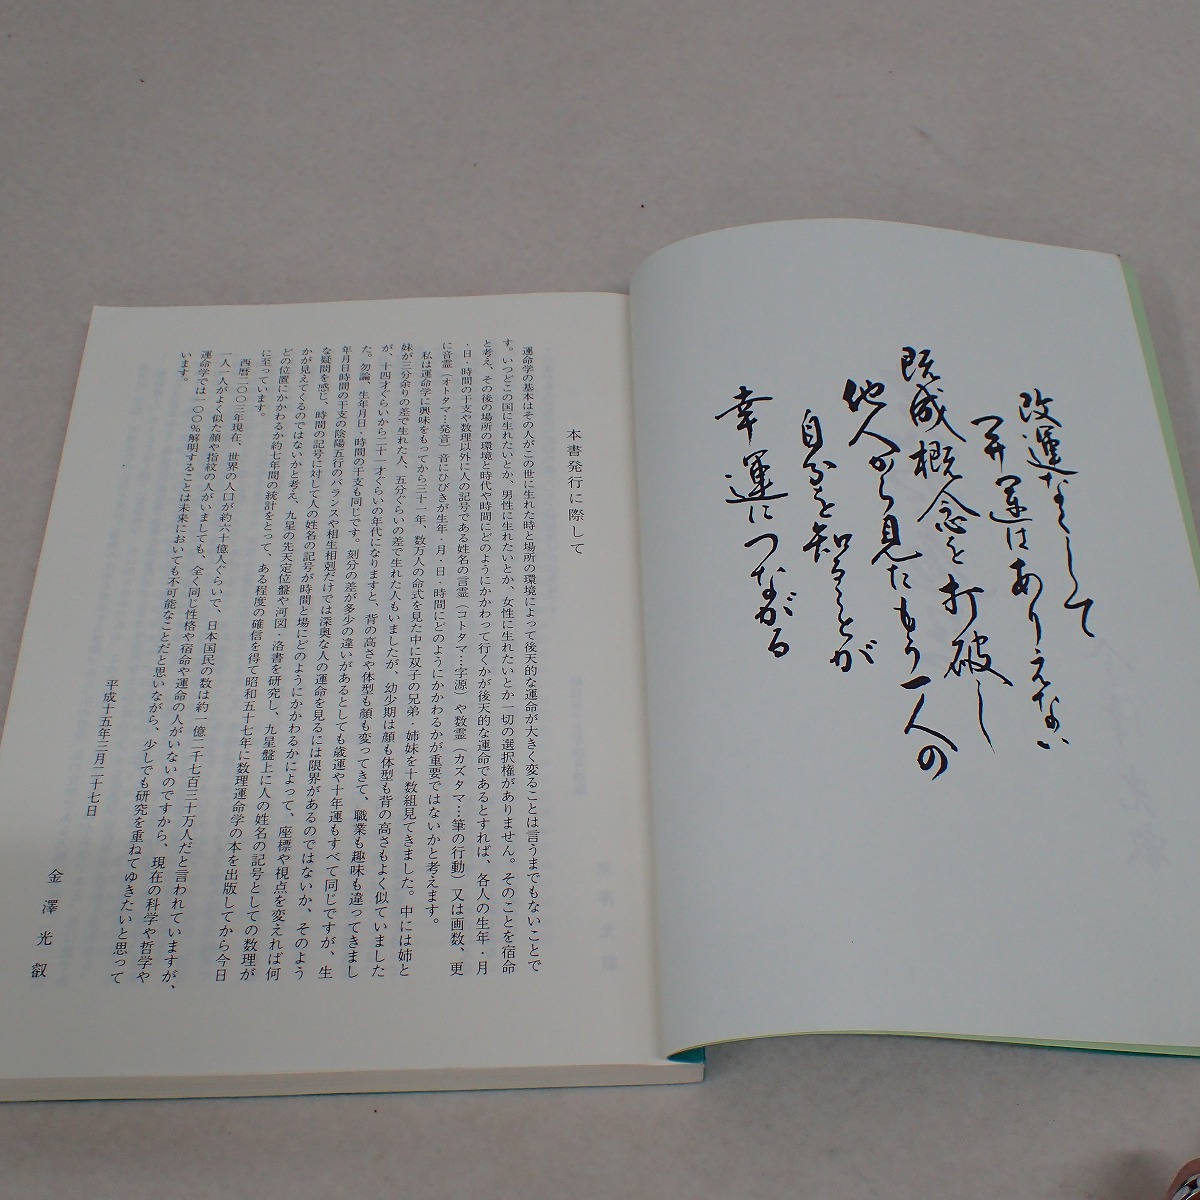 改運なくして
開運はありえない
既成概念を打破し
他人から見たもう一人の
自分を知ることが
幸運につながる
本書発行に際して
運命学の基本はその人がこの世に生れた時と場所の環境によって後天的な運命が大きく変ることは言うまでもないことで
す。いつどこの国に生れたいとか、男性に生れたいとか、女性に生れたいとか一切の選択権がありません。そのことを宿命
と考え、その後の場所の環境と時代や時間にどのようにかかわって行くかが後天的な運命であるとすれば、各人の生年・月
・日・時間の干支や数理以外に人の記号である姓名の言霊（コトタマ…字源）や数霊（カズタマ…筆の行動）又は画数、更
に音霊（オトタマ…発音）音にひびきが生年・月・日・時間にどのようにかかわるかが重要ではないかと考えます。
私は運命学に興味をもってから三十一年、数万人の命式を見た中に双子の兄弟・姉妹を十数組見てきました。中には姉と
妹が三分余りの差で生れた人、五分ぐらいの差で生れた人もいましたが、幼少期は顔も体型も背の高さもよく似ていました
が、十四才ぐらいから二十一才ぐらいの年代になりますと、背の高さや体型も顔も変ってきて、職業も趣味も違ってきまし
た。勿論、生年月日・時間の干支も同じです。刻分の差が多少の違いがあるとしても歳運や十年運もすべて同じですが、生
年月日時間の干支の陰陽五行のバランスや相生相剋だけでは深奥な人の運命を見るには限界があるのではないか、そのよう
な疑問を感じ、時間の記号に対して人の姓名の記号が時間と場にどのようにかかわるかによって、座標や視点を変えれば何
かが見えてくるのではないかと考え、九星の先天定位盤や河図・洛書を研究し、九星盤上に人の姓名の記号としての数理が
どの位置にかかわるか約七年間の統計をとって、ある程度の確信を得て昭和五十七年に数理運命学の本を出版してから今日
に至っています。
西暦二〇〇三年現在、世界の人口が約六十億人ぐらいで、日本国民の数は約一億二千七百三十万人だと言われていますが、
一人一人がよく似た顔や指紋の人がいましても、全く同じ性格や宿命や運命の人がいないのですから、現在の科学や哲学や
運命学では一〇〇％解明することは未来においても不可能なことだと思いながら、少しでも研究を重ねてゆきたいと思って
います。
平成十五年三月二十七日
金澤光叡